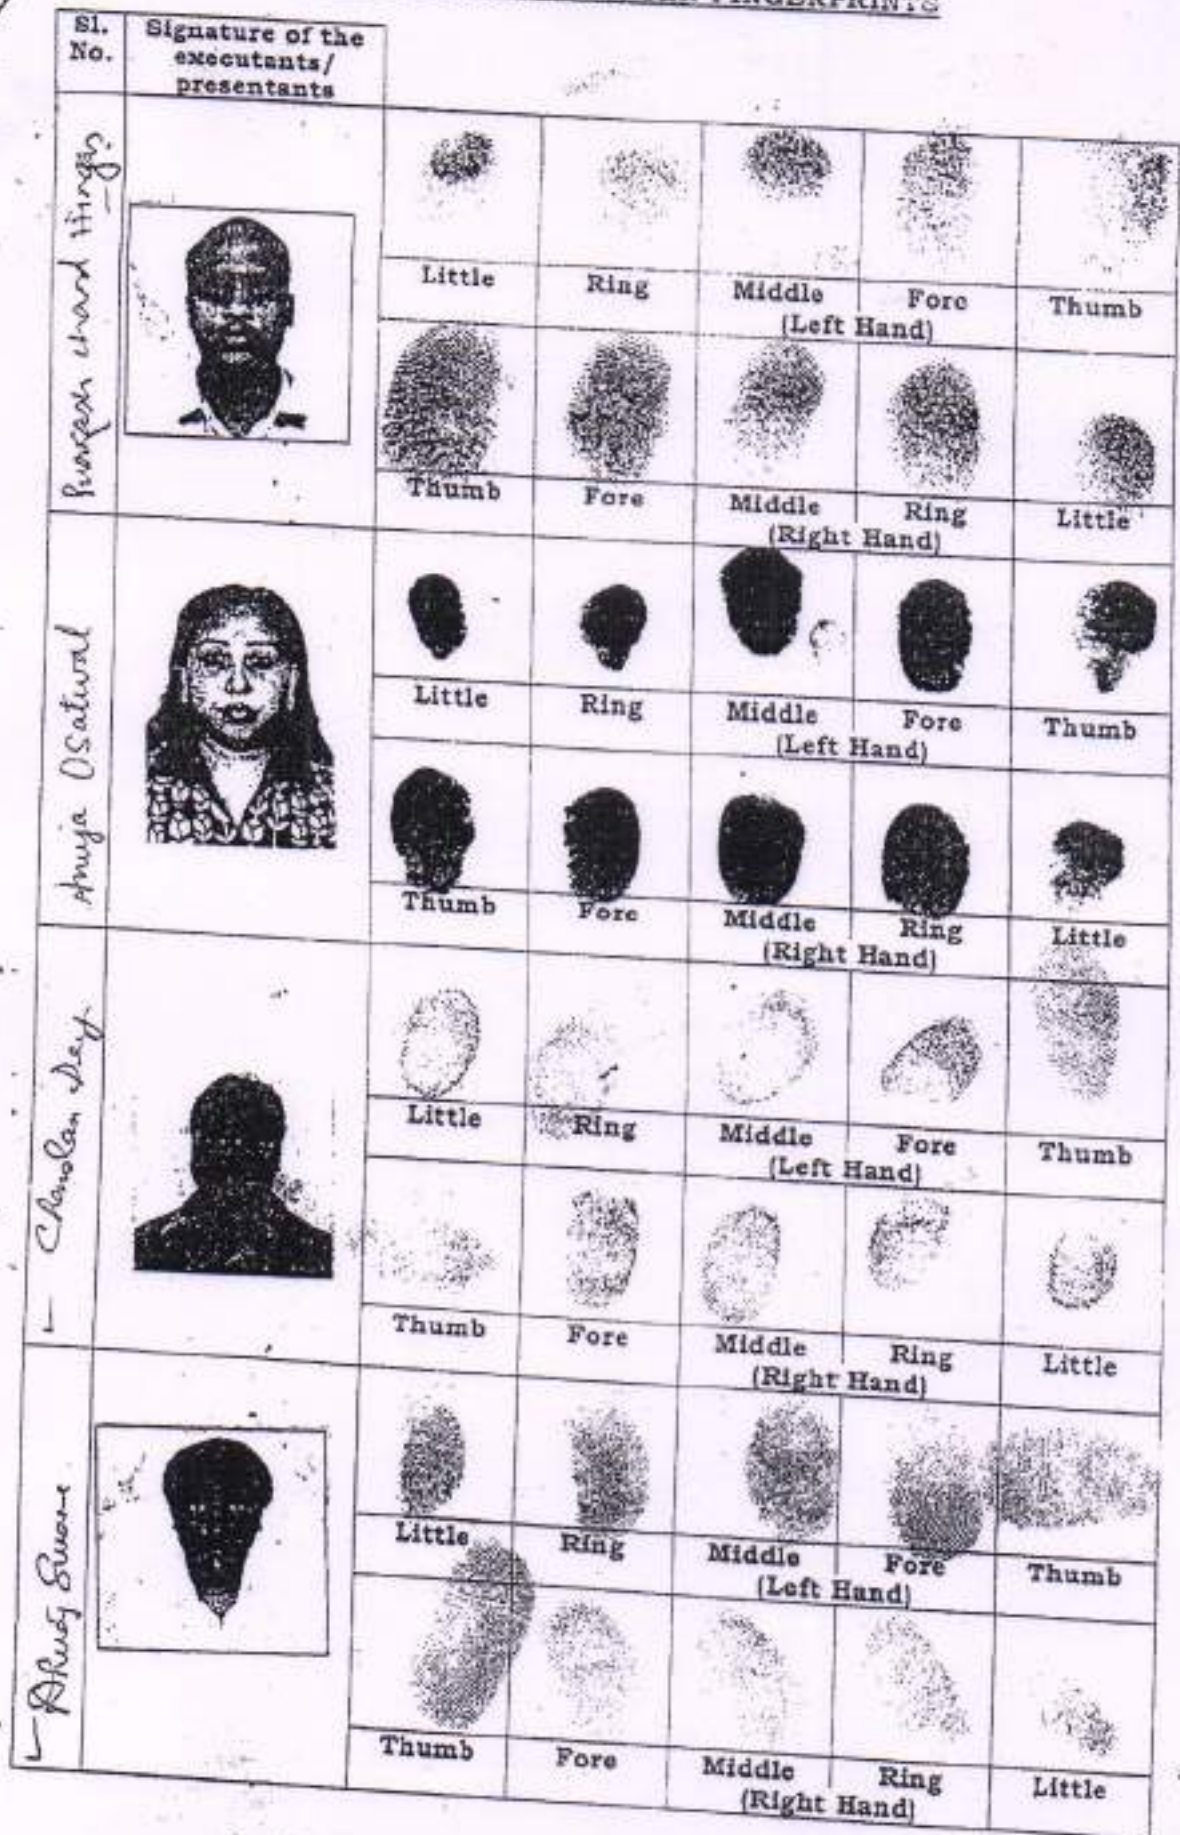 FINGERPRINTS
Sl. No.
Signature of the executants/ presentants
Little Ring Middle Fore Thumb
(Left Hand)
Thumb Fore Middle Ring Little
(Right Hand)
Anuja Osatwal
Little Ring Middle Fore Thumb
(Left Hand)
Thumb Fore Middle Ring Little
(Right Hand)
Chandan Dey.
Little Ring Middle Fore Thumb
(Left Hand)
Thumb Fore Middle Ring Little
(Right Hand)
Little Ring Middle Fore Thumb
(Left Hand)
Thumb Fore Middle Ring Little
(Right Hand)